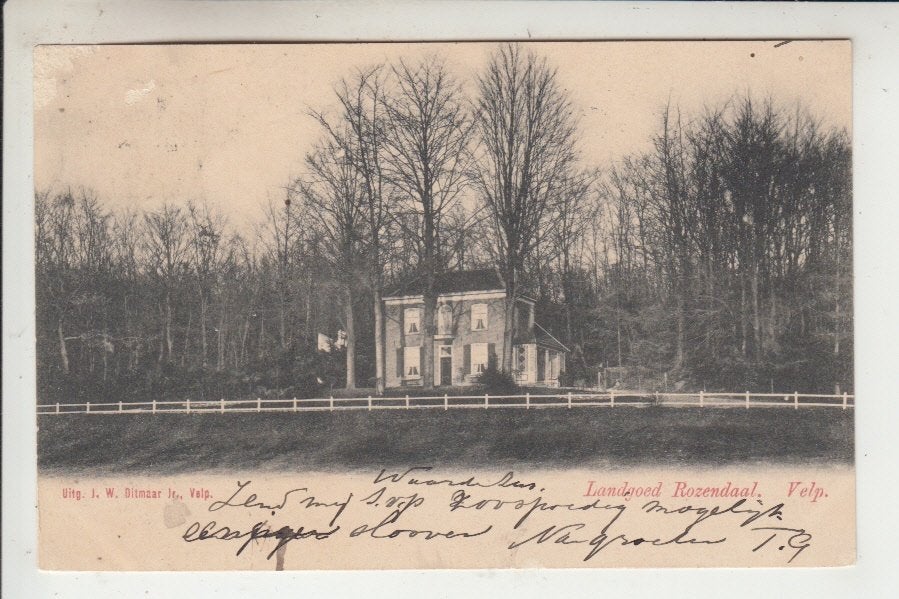 Uitg. J. W. Ditmaar Jr., Velp.
Landgoed Rozendaal. Velp.
Waarde
Zend mij s.v.p. zoospoedig mogelijk
Na groeten T. G